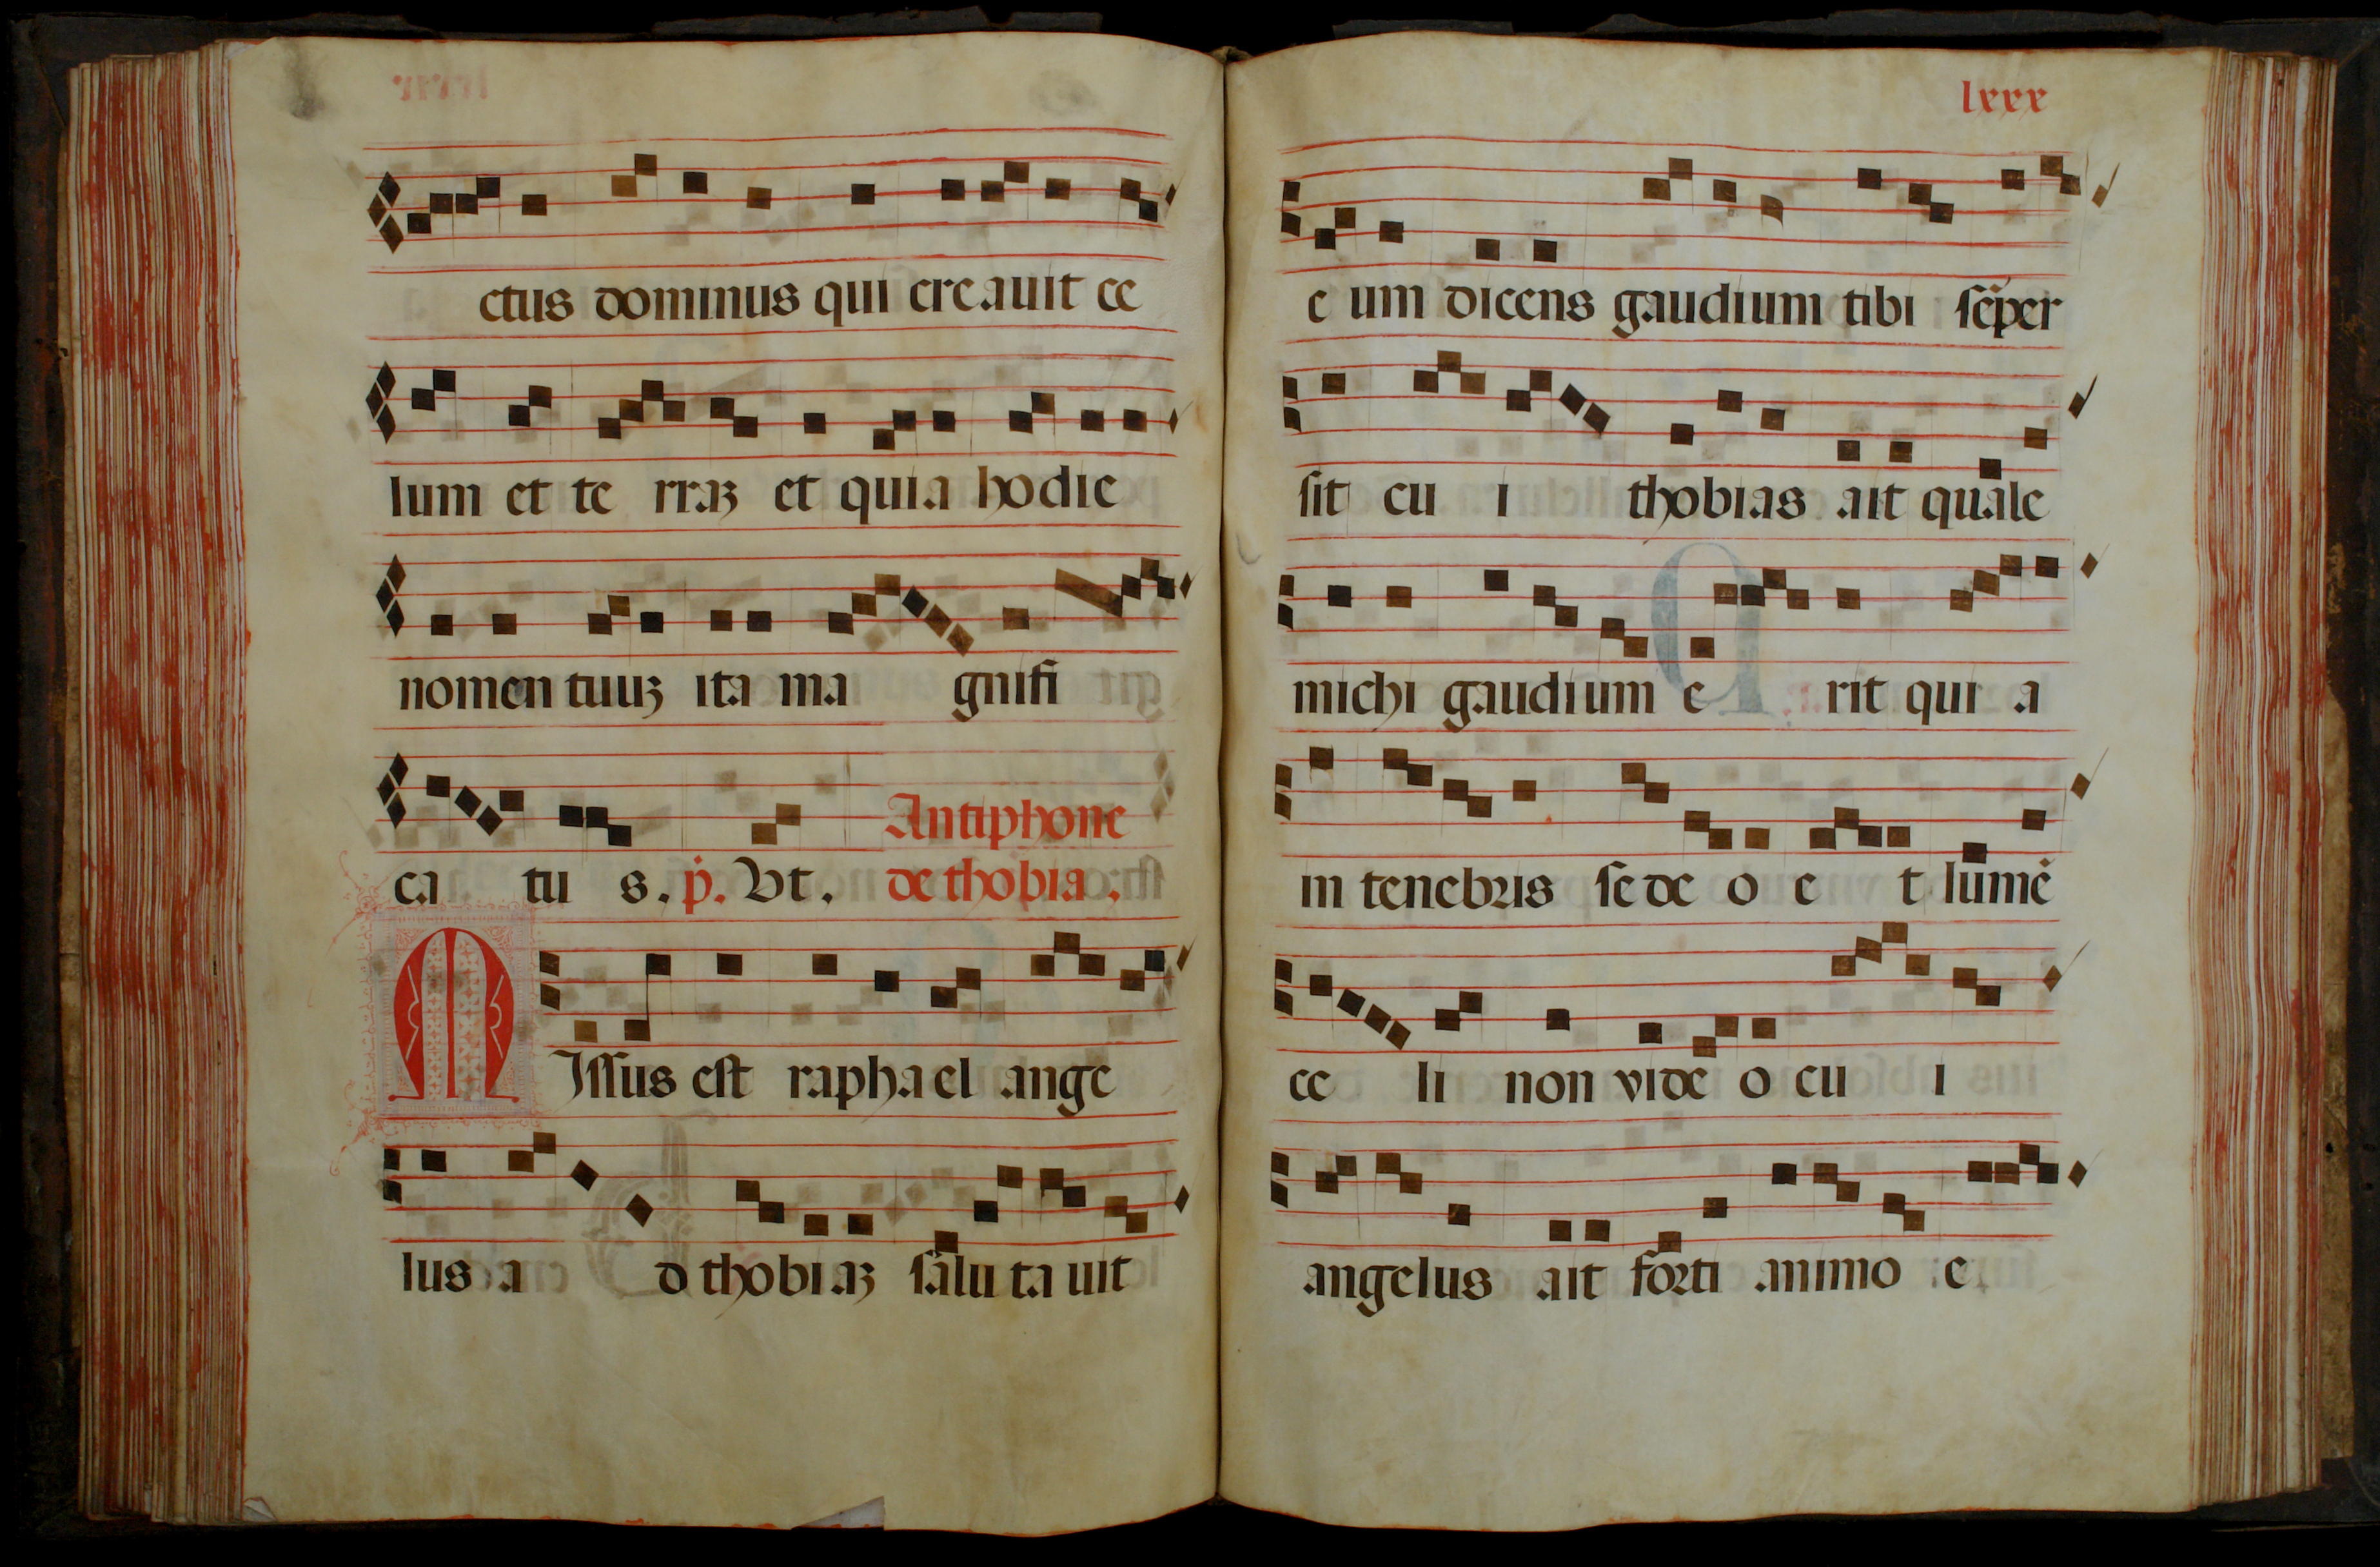 ctus dominus qui creauit ce
lum et te rraꝫ et quia hodie
nomen tuuꝫ ita ma gnifi
Antiphone
ca tu s. p̄. Vt. de thobia.
MIſſus eſt raphael ange
lus a d thobiaꝫ ſalutauit
lxxx
e um dicens gaudium tibi ſēper
ſit cu i thobias ait quale
michi gaudium e rit qui a
in tenebris ſede o e t lumē
ce li non video cu i
angelus ait forti animo e